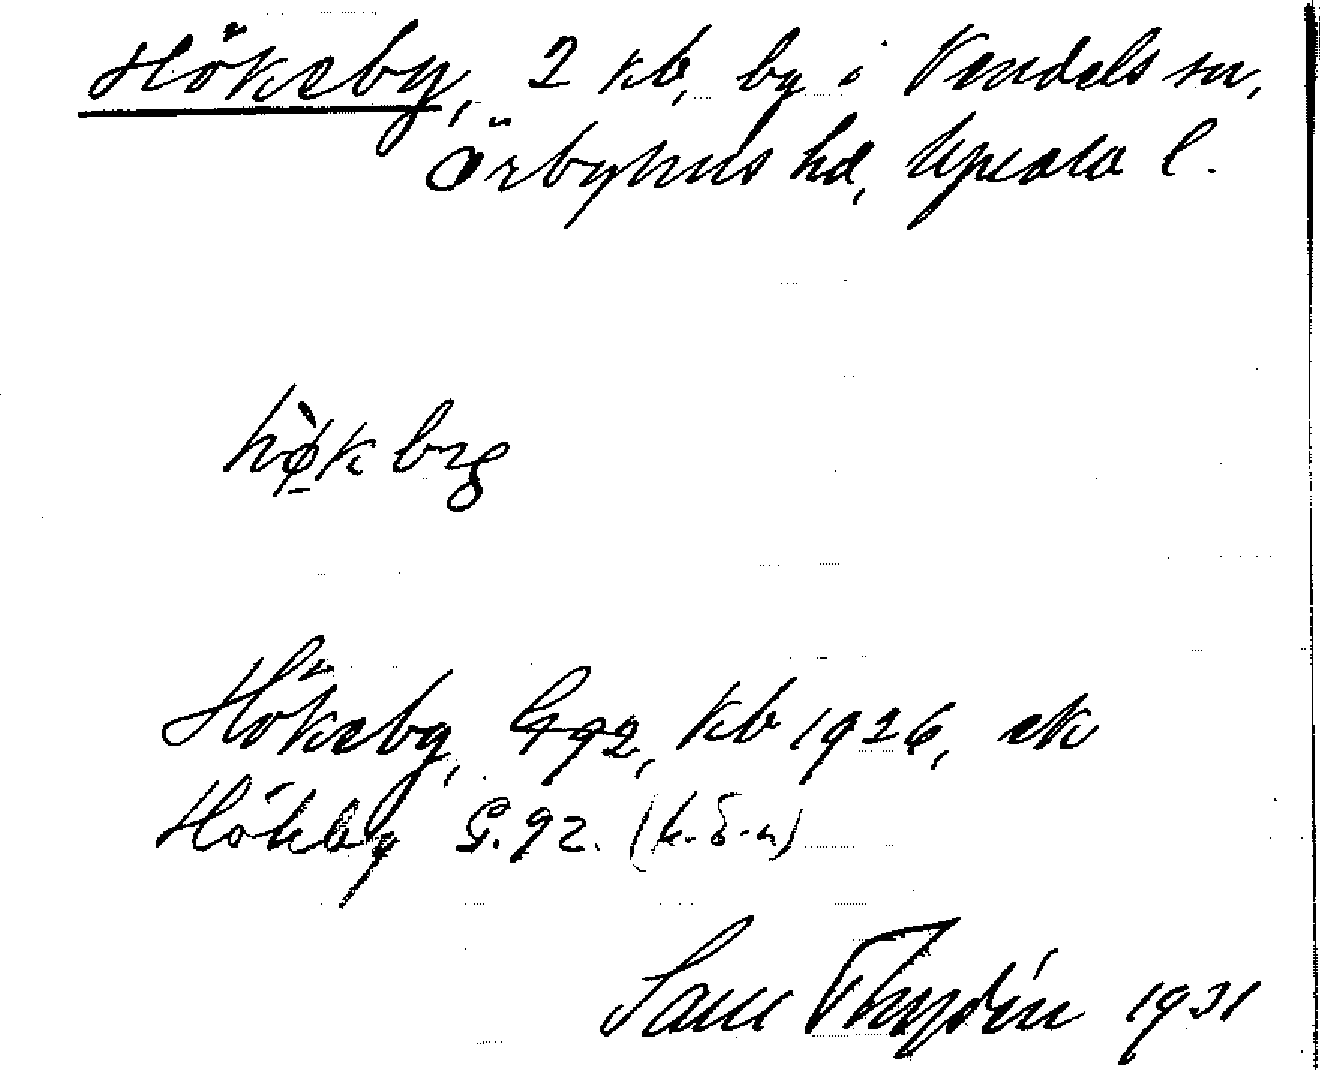 Hökeby, 2 kb, by i Vendels sn,
Örbyhus hd, Upsala l.
Hökeby, G92, kb 1926, ek
Hökby G.92. (k.ö.n)
Sam Thyrén 1931